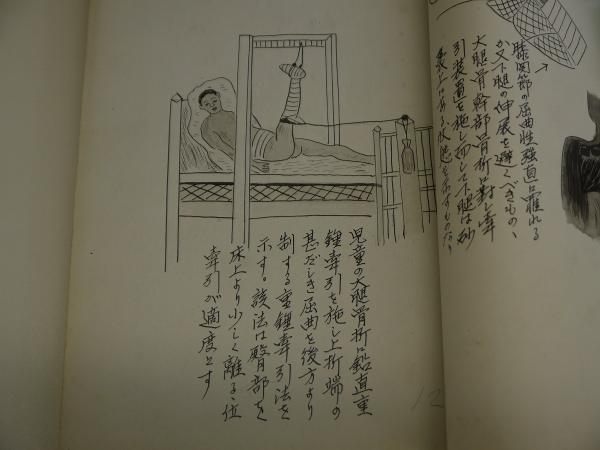 膝関節の屈曲性強直に罹れる
か又下腿の伸展を避くべきもの、
大腿骨幹部骨折に対し牽
引装置を施し而して下腿は砂
児童の大腿骨折に鉛直重
錘牽引を施し上折端の
甚だしき屈曲を後方より
制する重錘牽引法を
示す。該法は臀部を
床上より少しく離るゝ位
牽引が適度とす
12